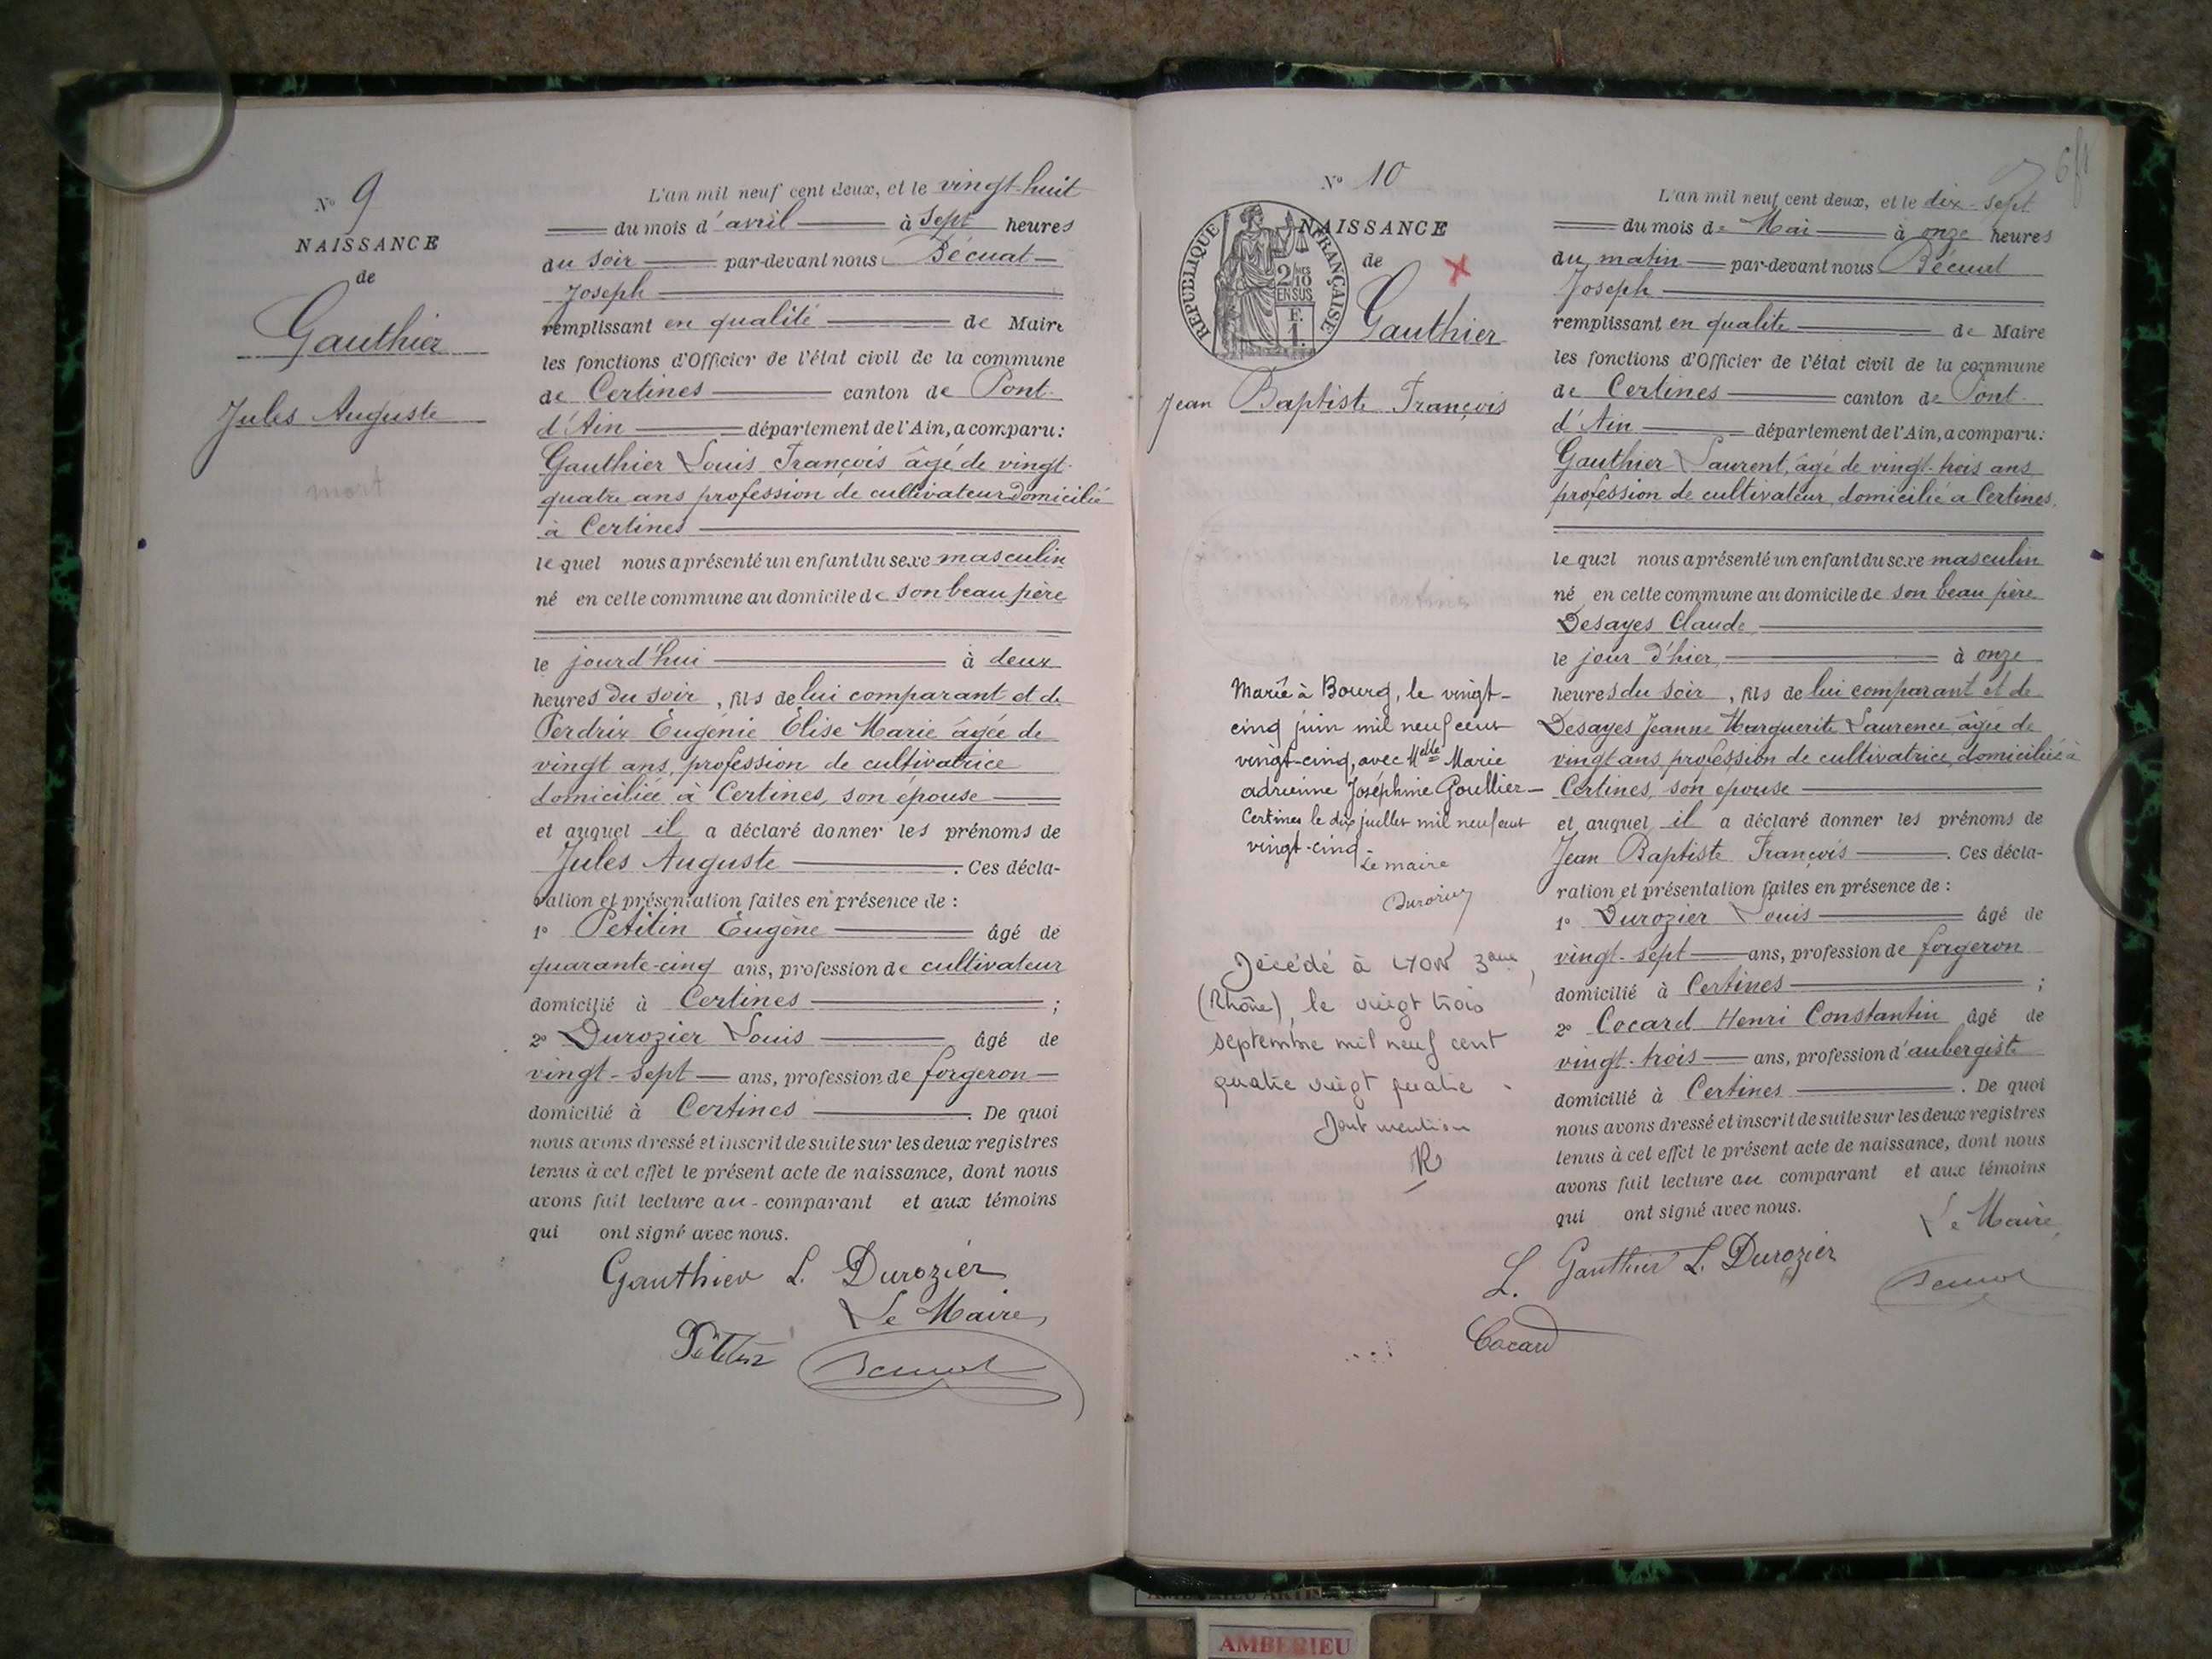 N° 9
NAISSANCE
de
Gauthier
Jules Auguste
L'an mil neuf cent deux, et le vingt-huit
du mois d'avril à sept heures
du soir par-devant nous Bécuat
Joseph
remplissant en qualité de Maire
les fonctions d'Officier de l'état civil de la commune
de Certines canton de Pont-
d'Ain département de l'Ain, a comparu:
Gauthier Louis François âgé de vingt-
quatre ans profession de cultivateur domicilié
à Certines
lequel nous a présenté un enfant du sexe masculin
né en cette commune au domicile de son beau père
le jourd'hui à deux
heures du soir, fils de lui comparant et de
Perdrix Eugénie Elise Marie âgée de
vingt ans, profession de cultivatrice
domiciliée à Certines, son épouse
et auquel il a déclaré donner les prénoms de
Jules Auguste. Ces décla-
ration et présentation faites en présence de :
1° Petitin Eugène âgé de
quarante-cinq ans, profession de cultivateur
domicilié à Certines ;
2° Durozier Louis âgé de
vingt-sept ans, profession de forgeron
domicilié à Certines. De quoi
nous avons dressé et inscrit de suite sur les deux registres
tenus à cet effet le présent acte de naissance, dont nous
avons fait lecture au comparant et aux témoins
qui ont signé avec nous.
Gauthier L. Durozier
Le Maire,
Petitin Bécuat
N° 10
NAISSANCE
de
RÉPUBLIQUE FRANÇAISE
2/10
EN SUS
F.
1.
Gauthier
Jean Baptiste François
Marié à Bourg, le vingt-
cinq juin mil neuf cent
vingt-cinq, avec Melle Marie
adrienne Joséphine Goullier
Certines le dix juillet mil neuf cent
vingt-cinq
Le maire
Durozier
Décédé à LYON 3ème
(Rhône), le vingt trois
septembre mil neuf cent
quatre vingt quatre
Dont mention
L'an mil neuf cent deux, et le dix-sept
du mois de Mai à onze heures
du matin par-devant nous Bécuat
Joseph
remplissant en qualité de Maire
les fonctions d'Officier de l'état civil de la commune
de Certines canton de Pont-
d'Ain département de l'Ain, a comparu:
Gauthier Laurent, âgé de vingt-trois ans
profession de cultivateur, domicilié à Certines,
lequel nous a présenté un enfant du sexe masculin
né en cette commune au domicile de son beau père
Desayes Claude
le jour d'hier, à onze
heures du soir, fils de lui comparant et de
Desayes Jeanne Marguerite Laurence âgée de
vingt ans, profession de cultivatrice, domiciliée à
Certines, son épouse
et auquel il a déclaré donner les prénoms de
Jean Baptiste François. Ces décla-
ration et présentation faites en présence de :
1° Durozier Louis âgé de
vingt-sept ans, profession de forgeron
domicilié à Certines ;
2° Cocard Henri Constantin âgé de
vingt-trois ans, profession d'aubergiste
domicilié à Certines. De quoi
nous avons dressé et inscrit de suite sur les deux registres
tenus à cet effet le présent acte de naissance, dont nous
avons fait lecture au comparant et aux témoins
qui ont signé avec nous.
Le Maire,
L. Gauthier L. Durozier
Bécuat
Cocard
AMBERIEU